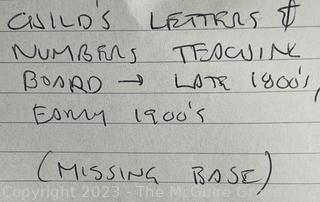 CHILD'S LETTERS &
NUMBERS TEACHING
BOARD → LATE 1800's,
EARLY 1900's
(MISSING BASE)
Copyright 2023 - The McGuire Gr